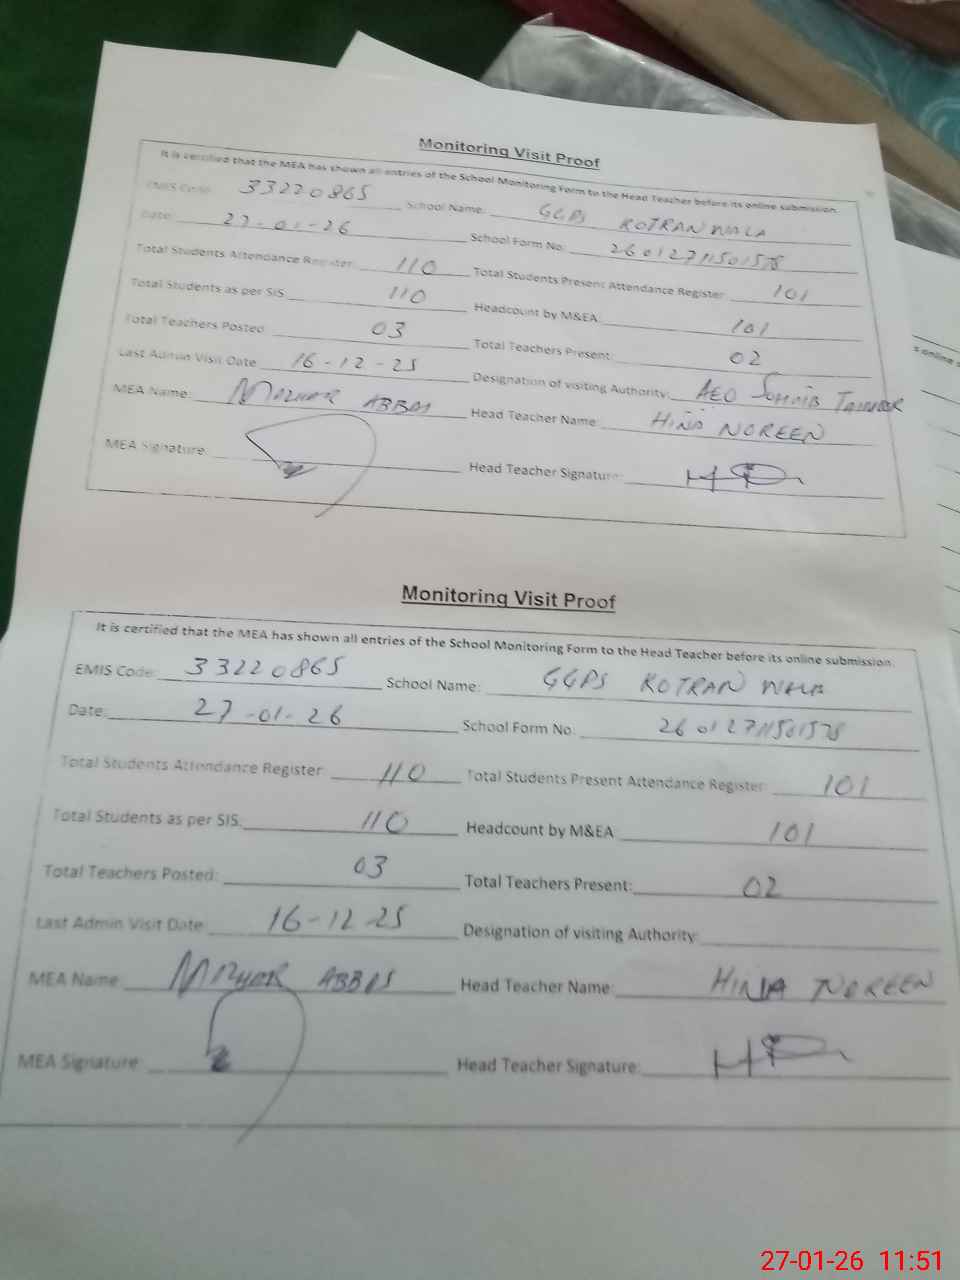 Monitoring Visit Proof
It is certified that the MEA has shown all entries of the School Monitoring Form to the Head Teacher before its online submission.
EMIS Code: 33220865 School Name: GGPS KOTRAN WALA
Date: 27-01-26 School Form No: 26012711501578
Total Students Attendance Register: 110 Total Students Present Attendance Register: 101
Total Students as per SIS: 110 Headcount by M&EA: 101
Total Teachers Posted: 03 Total Teachers Present: 02
Last Admin Visit Date: 16-12-25 Designation of visiting Authority: AEO
MEA Name: ABBAS Head Teacher Name: HINA NOREEN
MEA Signature: Head Teacher Signature:
Monitoring Visit Proof
It is certified that the MEA has shown all entries of the School Monitoring Form to the Head Teacher before its online submission.
EMIS Code: 33220865 School Name: GGPS KOTRAN WALA
Date: 27-01-26 School Form No: 26012711501578
Total Students Attendance Register: 110 Total Students Present Attendance Register: 101
Total Students as per SIS: 110 Headcount by M&EA: 101
Total Teachers Posted: 03 Total Teachers Present: 02
Last Admin Visit Date: 16-12-25 Designation of visiting Authority:
MEA Name: ABBAS Head Teacher Name: HINA NOREEN
MEA Signature: Head Teacher Signature:
27-01-26 11:51